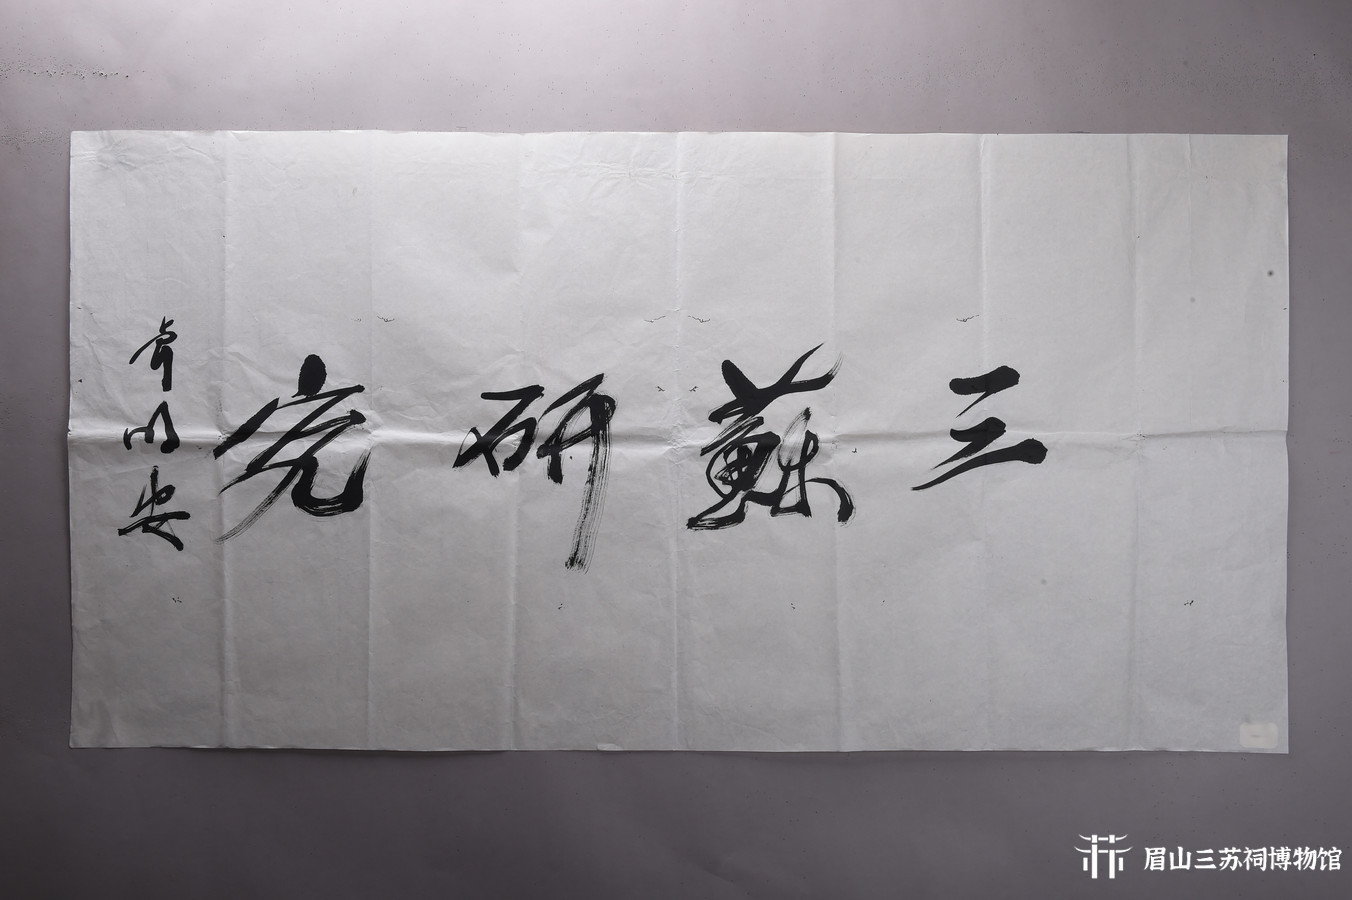 三蘇研究
章明安
眉山三苏祠博物馆